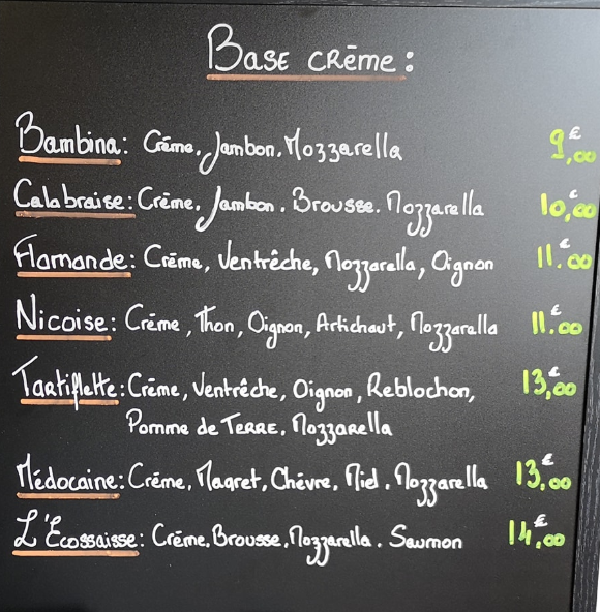 Base crème :
Bambina : Crème, Jambon, Mozzarella 9,00€
Calabraise : Crème, Jambon, Brousse, Mozzarella 10,00€
Flamande : Crème, Ventrêche, Mozzarella, Oignon 11.00€
Nicoise : Crème, Thon, Oignon, Artichaut, Mozzarella 11.00€
Tartiflette : Crème, Ventrêche, Oignon, Reblochon, 13,00€
Pomme de Terre, Mozzarella
Médocaine : Crème, Magret, Chèvre, Miel, Mozzarella 13,00€
L'Ecossaisse : Crème, Brousse, Mozzarella, Saumon 14,00€